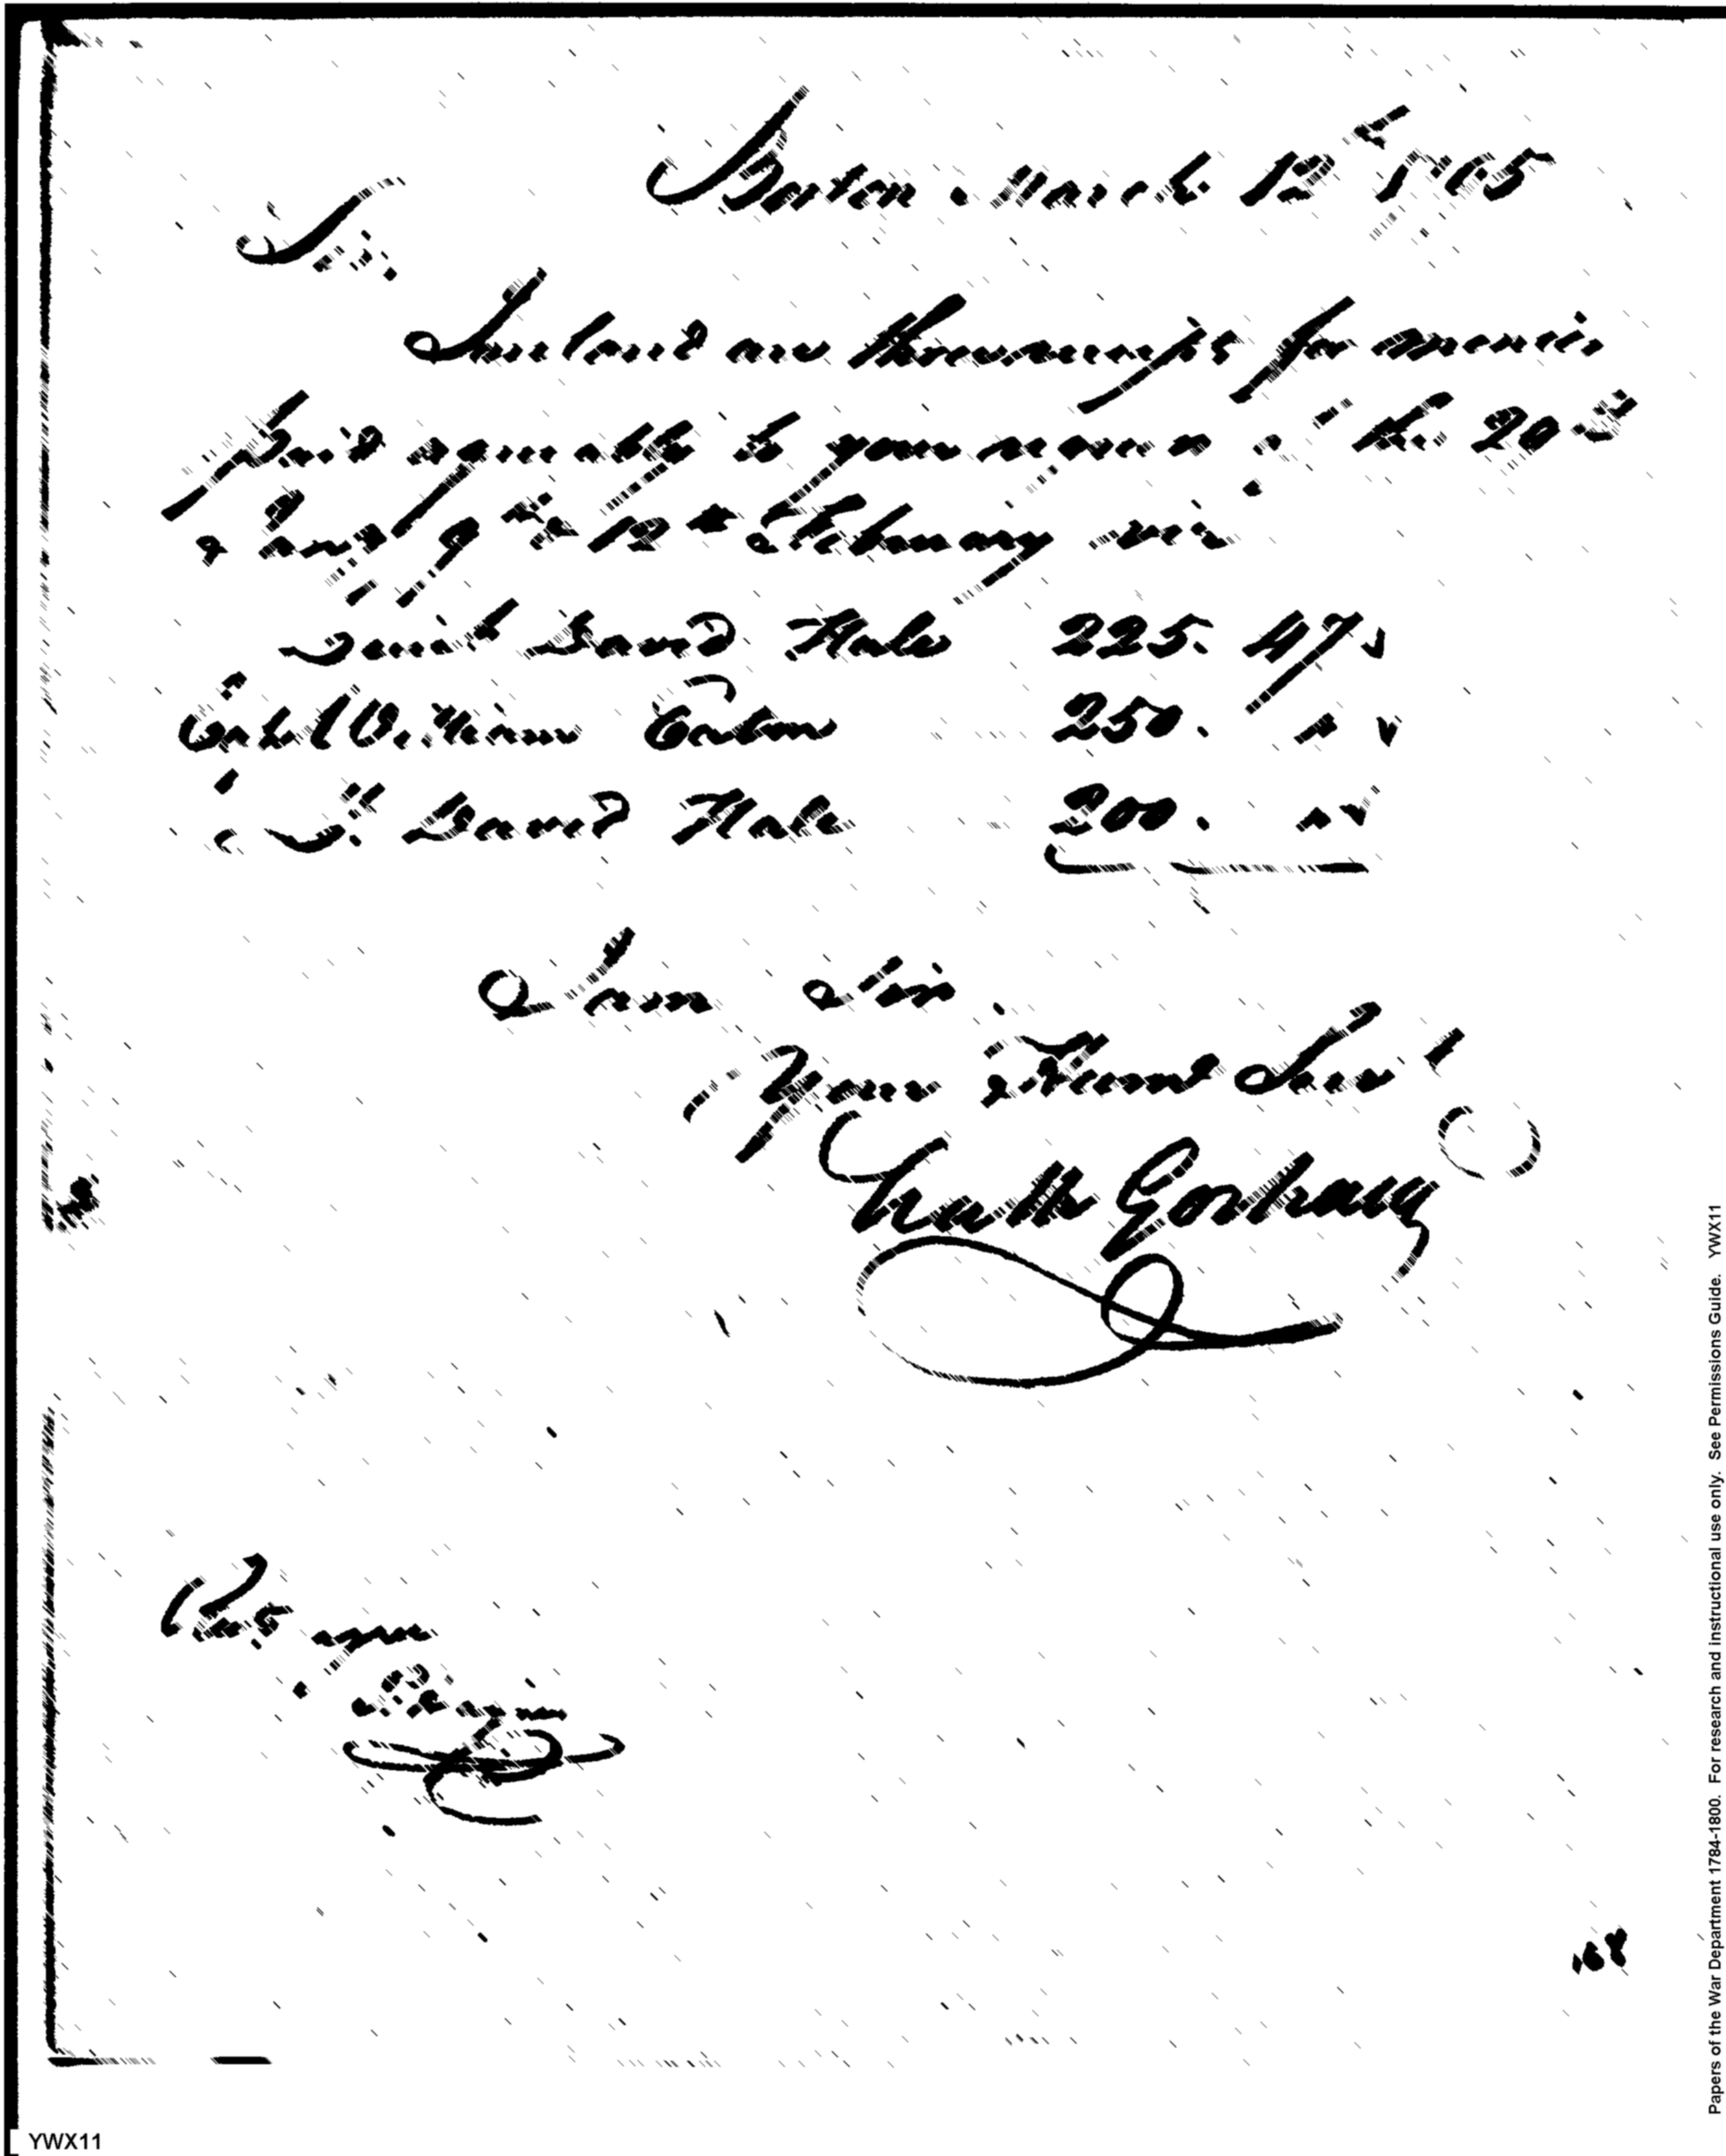 Boston March 12th 1795
Sir.
Inclosed are three receipts for monies
paid agreeably to your of the 20th
and 9th & 12th February viz
Lieut David Hale 225. 47
Capt William Eaton 250. "
Lt. David Hale 200. "
I am Sir
Your Humb Serv
Nath Gorham
168
YWX11
Papers of the War Department 1784-1800. For research and instructional use only. See Permissions Guide. YWX11